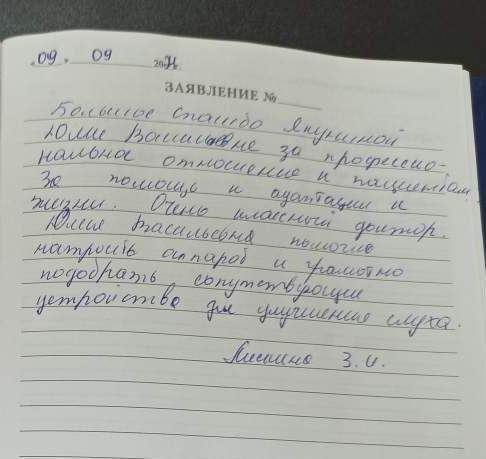 09. 09 20 г.
ЗАЯВЛЕНИЕ №
Большое спасибо Якуниной
Юлие Васильевне за профессио-
нальное отношение к пациентам.
За помощь и адаптации к
жизни. Очень классный доктор.
Юлия Васильевна помогла
настроить аппарат и грамотно
подобрать сопутствующие
устройства для улучшения слуха.
З.И.